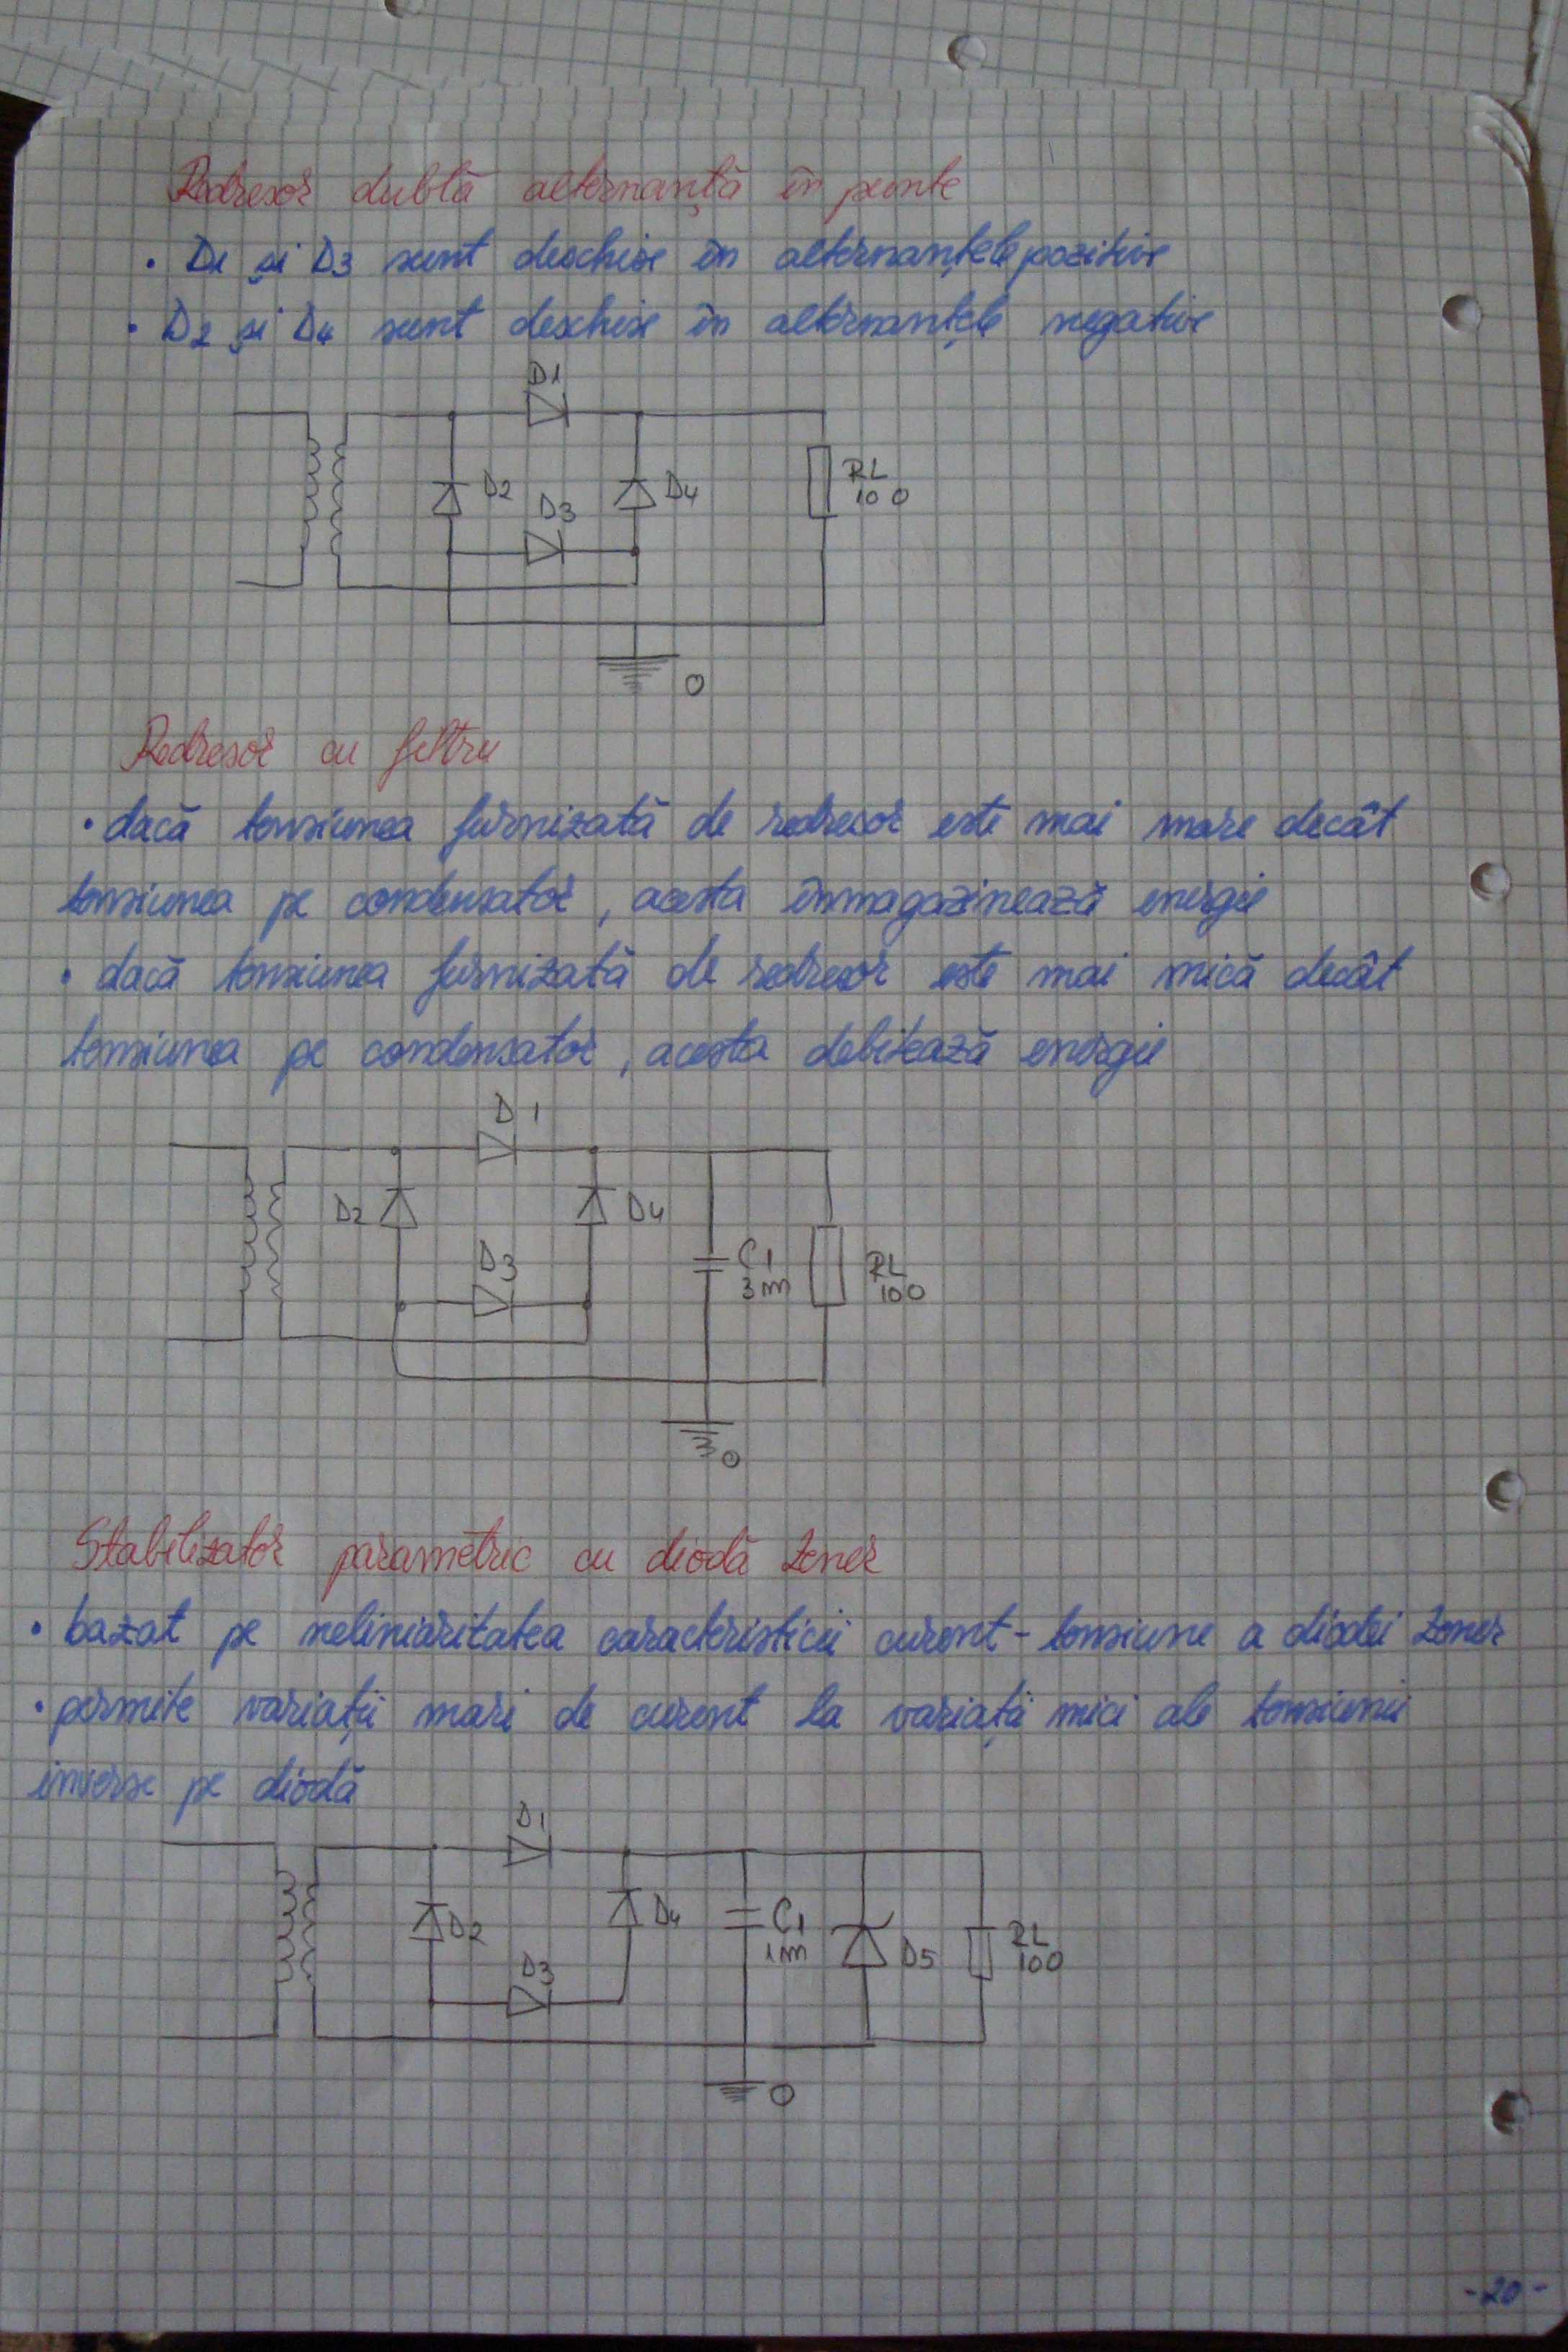 Redresor dublă alternanță în punte
• D1 și D3 sunt deschise în alternanțele pozitive
• D2 și D4 sunt deschise în alternanțele negative
D1
D2
D3
D4
RL
100
0
Redresor cu filtru
• dacă tensiunea furnizată de redresor este mai mare decât
tensiunea pe condensator, acesta înmagazinează energie
• dacă tensiunea furnizată de redresor este mai mică decât
tensiunea pe condensator, acesta debitează energie
D1
D2
D4
D3
C1
3m
RL
100
0
Stabilizator parametric cu diodă Zener
• bazat pe neliniaritatea caracteristicii curent-tensiune a diodei Zener
• permite variații mari de curent la variații mici ale tensiunii
inverse pe diodă
D1
D2
D4
D3
C1
1m
D5
RL
100
0
-20-